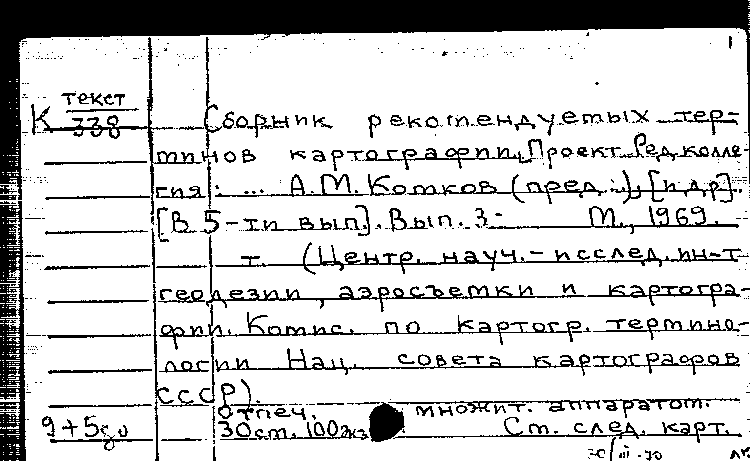 1
текст
К 338
Сборник рекомендуемых тер-
минов картографии. Проект. Ред. колле-
гия: ... А.М. Комков (пред.), [и др.].
[В 5-ти вып]. Вып. 3- М., 1969.
т. (Центр. науч.-исслед. ин-т
геодезии, аэросъемки и картогра-
фии. Комис. по картогр. термино-
логии Нац. совета картографов
СССР).
Отпеч. множит. аппаратом.
9+5до 30 ст. 100 экз. См. след. карт.